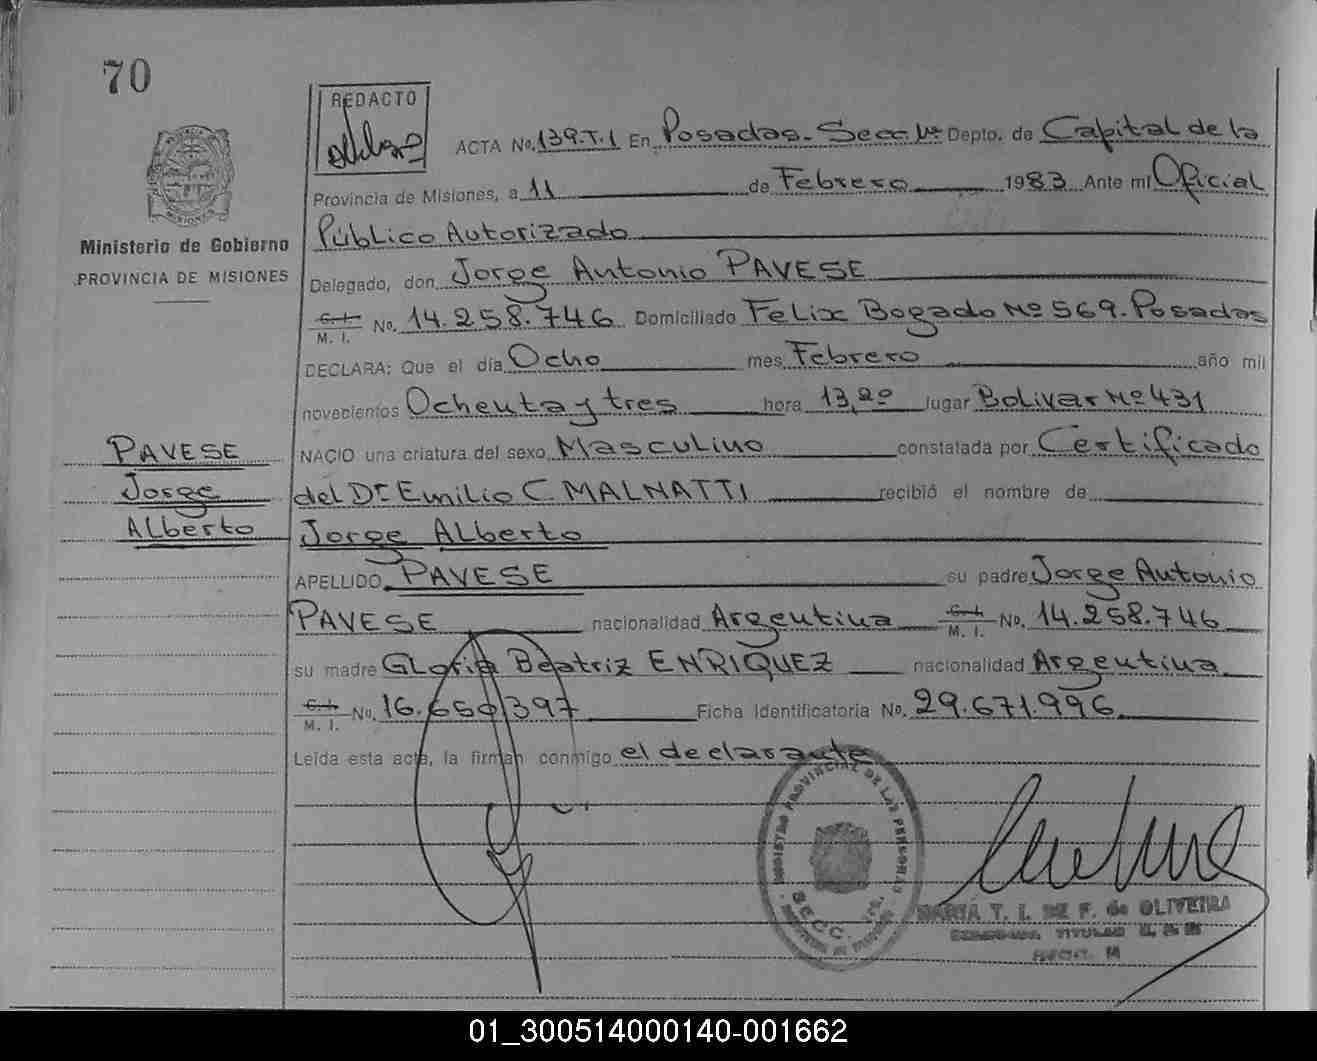 70
REDACTO
ACTA No. 139.T.1 En Posadas - Secc. 1ª Depto. de Capital de la
Provincia de Misiones, a 11 de Febrero 1983 Ante mi Oficial
Público Autorizado
Delegado, don Jorge Antonio PAVESE
C. I.
M. I. No. 14.258.746 Domiciliado Felix Bogado Nº 569. Posadas
DECLARA: Que el día Ocho mes Febrero año mil
novecientos Ochenta y tres hora 13,20 lugar Bolivar Nº 431
NACIO una criatura del sexo Masculino constatada por Certificado
del Dr Emilio C. MALNATTI recibió el nombre de
Jorge Alberto
APELLIDO PAVESE su padre Jorge Antonio
PAVESE nacionalidad Argentina C. I. M. I. No. 14.258.746
su madre Gloria Beatriz ENRIQUEZ nacionalidad Argentina
C. I.
M. I. No. 16.650.397 Ficha Identificatoria No. 29.671.996
Leída esta acta, la firman conmigo el declarante
PROVINCIA
MISIONES
Ministerio de Gobierno
PROVINCIA DE MISIONES
PAVESE
Jorge
Alberto
REGISTRO PROVINCIAL DE LAS PERSONAS
SECC.
MARIA T. I. DE F. de OLIVEIRA
TITULAR
SECC.
01_300514000140-001662